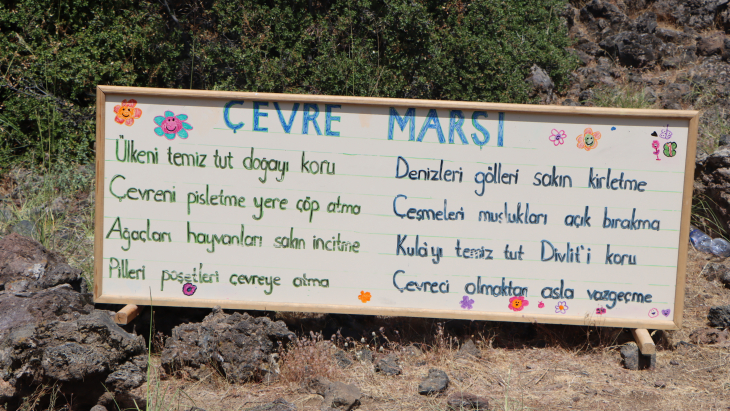 ÇEVRE MARŞI
Ülkeni temiz tut doğayı koru
Çevreni pisletme yere çöp atma
Ağaçları hayvanları sakın incitme
Pilleri poşetleri çevreye atma
Denizleri gölleri sakın kirletme
Çeşmeleri muslukları açık bırakma
Kula'yı temiz tut Divlit'i koru
Çevreci olmaktan asla vazgeçme